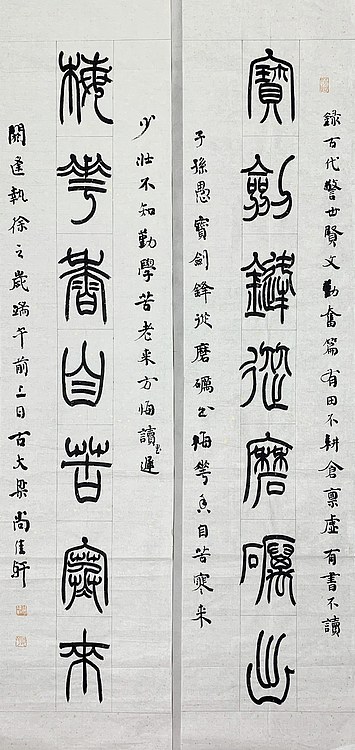 録古代警世賢文勤奮篇有田不耕倉禀虛有書不讀
寶劍鏠從磨礪出
子孫愚寶劍鋒從磨礪出梅華香自苦寒来
少壮不知勤學苦老来方悔讀书遲
梅華香自苦寒來
閼逢執徐之歲端午前三日古大梁尚佳軒